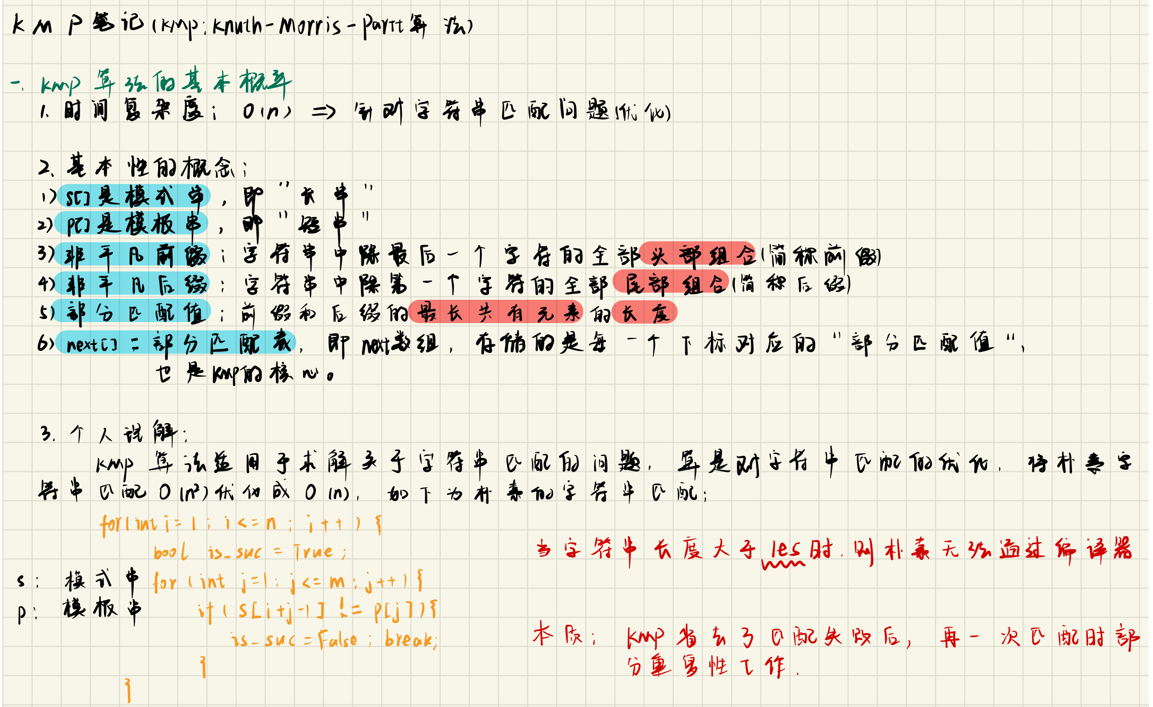 KMP笔记(KMP:Knuth-Morris-Partt算法)
一. KMP算法的基本概率
1. 时间复杂度; O(n) => 针对字符串匹配问题(优化)
2. 基本性的概念;
1) S[]是模式串, 即"长串"
2) P[]是模板串, 即"短串"
3) 非平凡前缀; 字符串中除最后一个字符的全部头部组合(简称前缀)
4) 非平凡后缀; 字符串中除第一个字符的全部尾部组合(简称后缀)
5) 部分匹配值; 前缀和后缀的最长共有元素的长度
6) next[]=部分匹配表, 即next数组, 存储的是每一个下标对应的"部分匹配值",
也是KMP的核心。
3. 个人说解;
KMP算法适用于求解关于字符串匹配的问题, 算是对字符串匹配的优化, 将朴素字
符串匹配O(n²)优化成O(n), 如下为朴素的字符串匹配;
for(int i=1; i<=n; i++){
bool is_suc = True;
当字符串长度大于1e5时, 则朴素无法通过编译器
s: 模式串 for (int j=1; j<=m; j++){
p: 模板串 if(S[i+j-1] != P[j]){
is_suc=False; break;
本质; KMP省去了匹配失败后, 再一次匹配时部
分重复性工作.
}
}